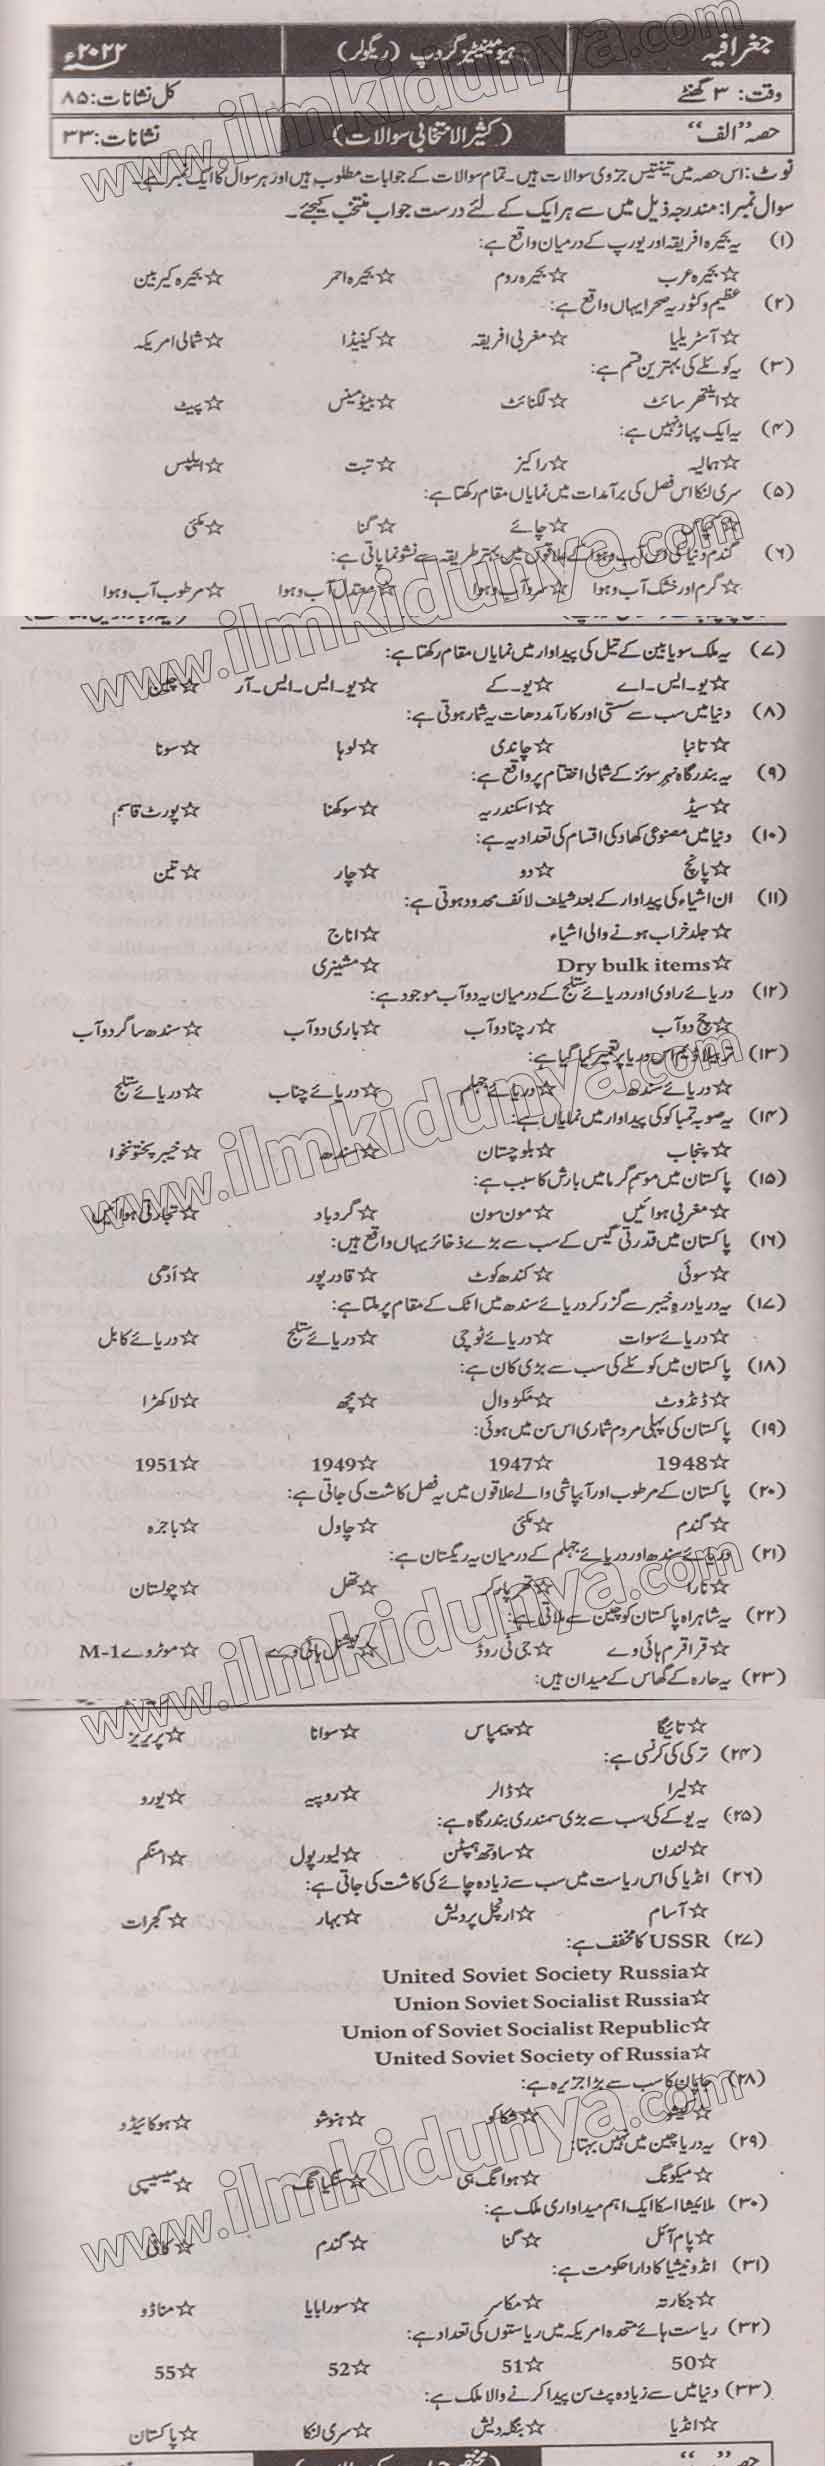 جغرافیہ ہیومینٹیز گروپ (ریگولر) ۲۰۲۲ء
وقت: ۳ گھنٹے کل نشانات: ۸۵
حصہ "الف" (کثیر الانتخابی سوالات) نشانات: ۳۳
نوٹ: اس حصہ میں تینتیس جزوی سوالات ہیں۔ تمام سوالات کے جوابات مطلوب ہیں اور ہر سوال کا ایک نمبر ہے۔
سوال نمبر۱: مندرجہ ذیل میں سے ہر ایک کے لئے درست جواب منتخب کیجئے۔
(۱) یہ بحیرہ افریقہ اور یورپ کے درمیان واقع ہے:
☆بحیرہ عرب ☆بحیرہ روم ☆بحیرہ احمر ☆بحیرہ کیربین
(۲) عظیم وکٹوریہ صحرا یہاں واقع ہے:
☆آسٹریلیا ☆مغربی افریقہ ☆کینیڈا ☆شمالی امریکہ
(۳) یہ کوئلے کی بہترین قسم ہے:
☆اینتھرسائٹ ☆لگنائٹ ☆بیٹومینس ☆پیٹ
(۴) یہ ایک پہاڑ نہیں ہے:
☆ہمالیہ ☆راکیز ☆تبت ☆ایلپس
(۵) سری لنکا اس فصل کی برآمدات میں نمایاں مقام رکھتا ہے:
☆ ☆چائے ☆گنا ☆مکئی
(۶) گندم دنیا کی اس آب و ہوا کے علاقوں میں بہتر طریقہ سے نشوونما پاتی ہے:
☆گرم اور خشک آب و ہوا ☆سرد آب و ہوا ☆معتدل آب و ہوا ☆مرطوب آب و ہوا
(۷) یہ ملک سویابین کے تیل کی پیداوار میں نمایاں مقام رکھتا ہے:
☆یو۔ایس۔اے ☆یو۔کے ☆یو۔ایس۔ایس۔آر ☆چین
(۸) دنیا میں سب سے سستی اور کارآمد دھات یہ شمار ہوتی ہے:
☆تانبا ☆چاندی ☆لوہا ☆سونا
(۹) یہ بندرگاہ نہر سوئز کے شمالی اختتام پر واقع ہے:
☆سیڈ ☆اسکندریہ ☆سوکھنا ☆پورٹ قاسم
(۱۰) دنیا میں مصنوعی کھاد کی اقسام کی تعداد یہ ہے:
☆پانچ ☆دو ☆چار ☆تین
(۱۱) ان اشیاء کی پیداوار کے بعد شیلف لائف محدود ہوتی ہے:
☆جلد خراب ہونے والی اشیاء ☆اناج
☆Dry bulk items ☆مشینری
(۱۲) دریائے راوی اور دریائے ستلج کے درمیان یہ دوآب موجود ہے:
☆چج دوآب ☆رچنا دوآب ☆باری دوآب ☆سندھ ساگر دوآب
(۱۳) تربیلا ڈیم اس دریا پر تعمیر کیا گیا ہے:
☆دریائے سندھ ☆دریائے جہلم ☆دریائے چناب ☆دریائے ستلج
(۱۴) یہ صوبہ تمباکو کی پیداوار میں نمایاں ہے:
☆پنجاب ☆بلوچستان ☆سندھ ☆خیبر پختونخوا
(۱۵) پاکستان میں موسم گرما میں بارش کا سبب ہے:
☆مغربی ہوائیں ☆مون سون ☆گردباد ☆تجارتی ہوائیں
(۱۶) پاکستان میں قدرتی گیس کے سب سے بڑے ذخائر یہاں واقع ہیں:
☆سوئی ☆کندھ کوٹ ☆قادر پور ☆اَدھی
(۱۷) یہ دریا درہ خیبر سے گزر کر دریائے سندھ میں اٹک کے مقام پر ملتا ہے:
☆دریائے سوات ☆دریائے ٹوچی ☆دریائے ستلج ☆دریائے کابل
(۱۸) پاکستان میں کوئلے کی سب سے بڑی کان ہے:
☆ڈنڈوٹ ☆مکڑوال ☆مچھ ☆لاکھڑا
(۱۹) پاکستان کی پہلی مردم شماری اس سن میں ہوئی:
☆1948 ☆1947 ☆1949 ☆1951
(۲۰) پاکستان کے مرطوب اور آبپاشی والے علاقوں میں یہ فصل کاشت کی جاتی ہے:
☆گندم ☆مکئی ☆چاول ☆باجرہ
(۲۱) دریائے سندھ اور دریائے جہلم کے درمیان یہ ریگستان ہے:
☆نارا ☆تھرپارکر ☆تھل ☆چولستان
(۲۲) یہ شاہراہ پاکستان کو چین سے ملاتی ہے:
☆قراقرم ہائی وے ☆جی ٹی روڈ ☆نیشنل ہائی وے ☆موٹروے M-1
(۲۳) یہ حارہ کے گھاس کے میدان ہیں:
☆تائیگا ☆پیمپاس ☆سوانا ☆پریریز
(۲۴) ترکی کی کرنسی ہے:
☆لیرا ☆ڈالر ☆روپیہ ☆یورو
(۲۵) یہ یوکے کی سب سے بڑی سمندری بندرگاہ ہے:
☆لندن ☆ساوتھ ہمپٹن ☆لیورپول ☆امنگم
(۲۶) انڈیا کی اس ریاست میں سب سے زیادہ چائے کی کاشت کی جاتی ہے:
☆آسام ☆ارنچل پردیش ☆بہار ☆گجرات
(۲۷) USSR کا مخفف ہے:
☆United Soviet Society Russia
☆Union Soviet Socialist Russia
☆Union of Soviet Socialist Republic
☆United Soviet Society of Russia
(۲۸) جاپان کا سب سے بڑا جزیرہ ہے:
☆کیشو ☆شکاکو ☆ہنوشو ☆ہوکائیڈو
(۲۹) یہ دریا چین میں نہیں بہتا:
☆میکونگ ☆ہوانگ ہی ☆سکیانگ ☆میسیسپی
(۳۰) ملائیشیا اسکا ایک اہم پیداواری ملک ہے:
☆پام آئل ☆گنا ☆گندم ☆کافی
(۳۱) انڈونیشیا کا دارالحکومت ہے:
☆جکارتہ ☆مکاسر ☆سورابایا ☆مناڈو
(۳۲) ریاست ہائے متحدہ امریکہ میں ریاستوں کی تعداد ہے:
☆50 ☆51 ☆52 ☆55
(۳۳) دنیا میں سے زیادہ پٹ سن پیدا کرنے والا ملک ہے:
☆انڈیا ☆بنگلہ دیش ☆سری لنکا ☆پاکستان
www.ilmkidunya.com
www.ilmkidunya.com
www.ilmkidunya.com
www.ilmkidunya.com
www.ilmkidunya.com